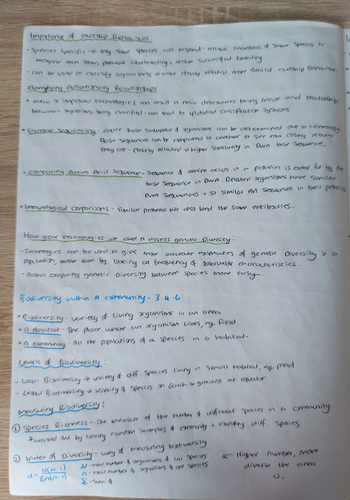 Importance of Courtship Behaviour:
- Species Specific → only same species will respond. Allows members of same species to
recognise each other, prevent interbreeding, allow successful breeding
- Can be used to classify organisms → more closely related, more similar courtship behaviour.
Clarifying Evolutionary Relationships
• New or improved technologies can result in new discoveries being made and relationships
between organisms being clarified. Can lead to updated classification systems
• Genome Sequencing - entire base sequence of organisms can be determined due to technology.
Base sequence can be compared to another to see how closely related
they are - closely related = higher similarity in DNA base sequence.
• Comparing Amino Acid Sequence - Sequence of amino acids in a protein is coded for by the
base sequence in DNA. Related organisms have similar
DNA sequences = so similar AA sequences in their proteins
• Immunological comparisons - Similar proteins will also bind the same antibodies.
How gene technologies are used to assess genetic diversity -
- Technologies can be used to give more accurate estimates of genetic diversity in a
population rather than by looking at frequency of observable characteristics.
- Allows comparing genetic diversity between species more easy.
Biodiversity within a community - 3.4.6
• Biodiversity: variety of living organisms in an area
• A habitat - The place where an organism lives, eg. field
• A community: All the populations of a species in a habitat.
Levels of Biodiversity:
- Local Biodiversity → variety of diff. species living in small habitat, eg. pond
- Global Biodiversity → variety of species on Earth → greatest at equator
Measuring Biodiversity:
① Species Richness - The measure of the number of different species in a community
* worked out by taking random samples of community & counting diff. species
② Index of Diversity - way of measuring biodiversity
d = N(N-1) / Σn(n-1)
N - total number of organisms of all species
n - total number of organisms of one species
Σ - Sum of
← Higher number, more
diverse the area
is.